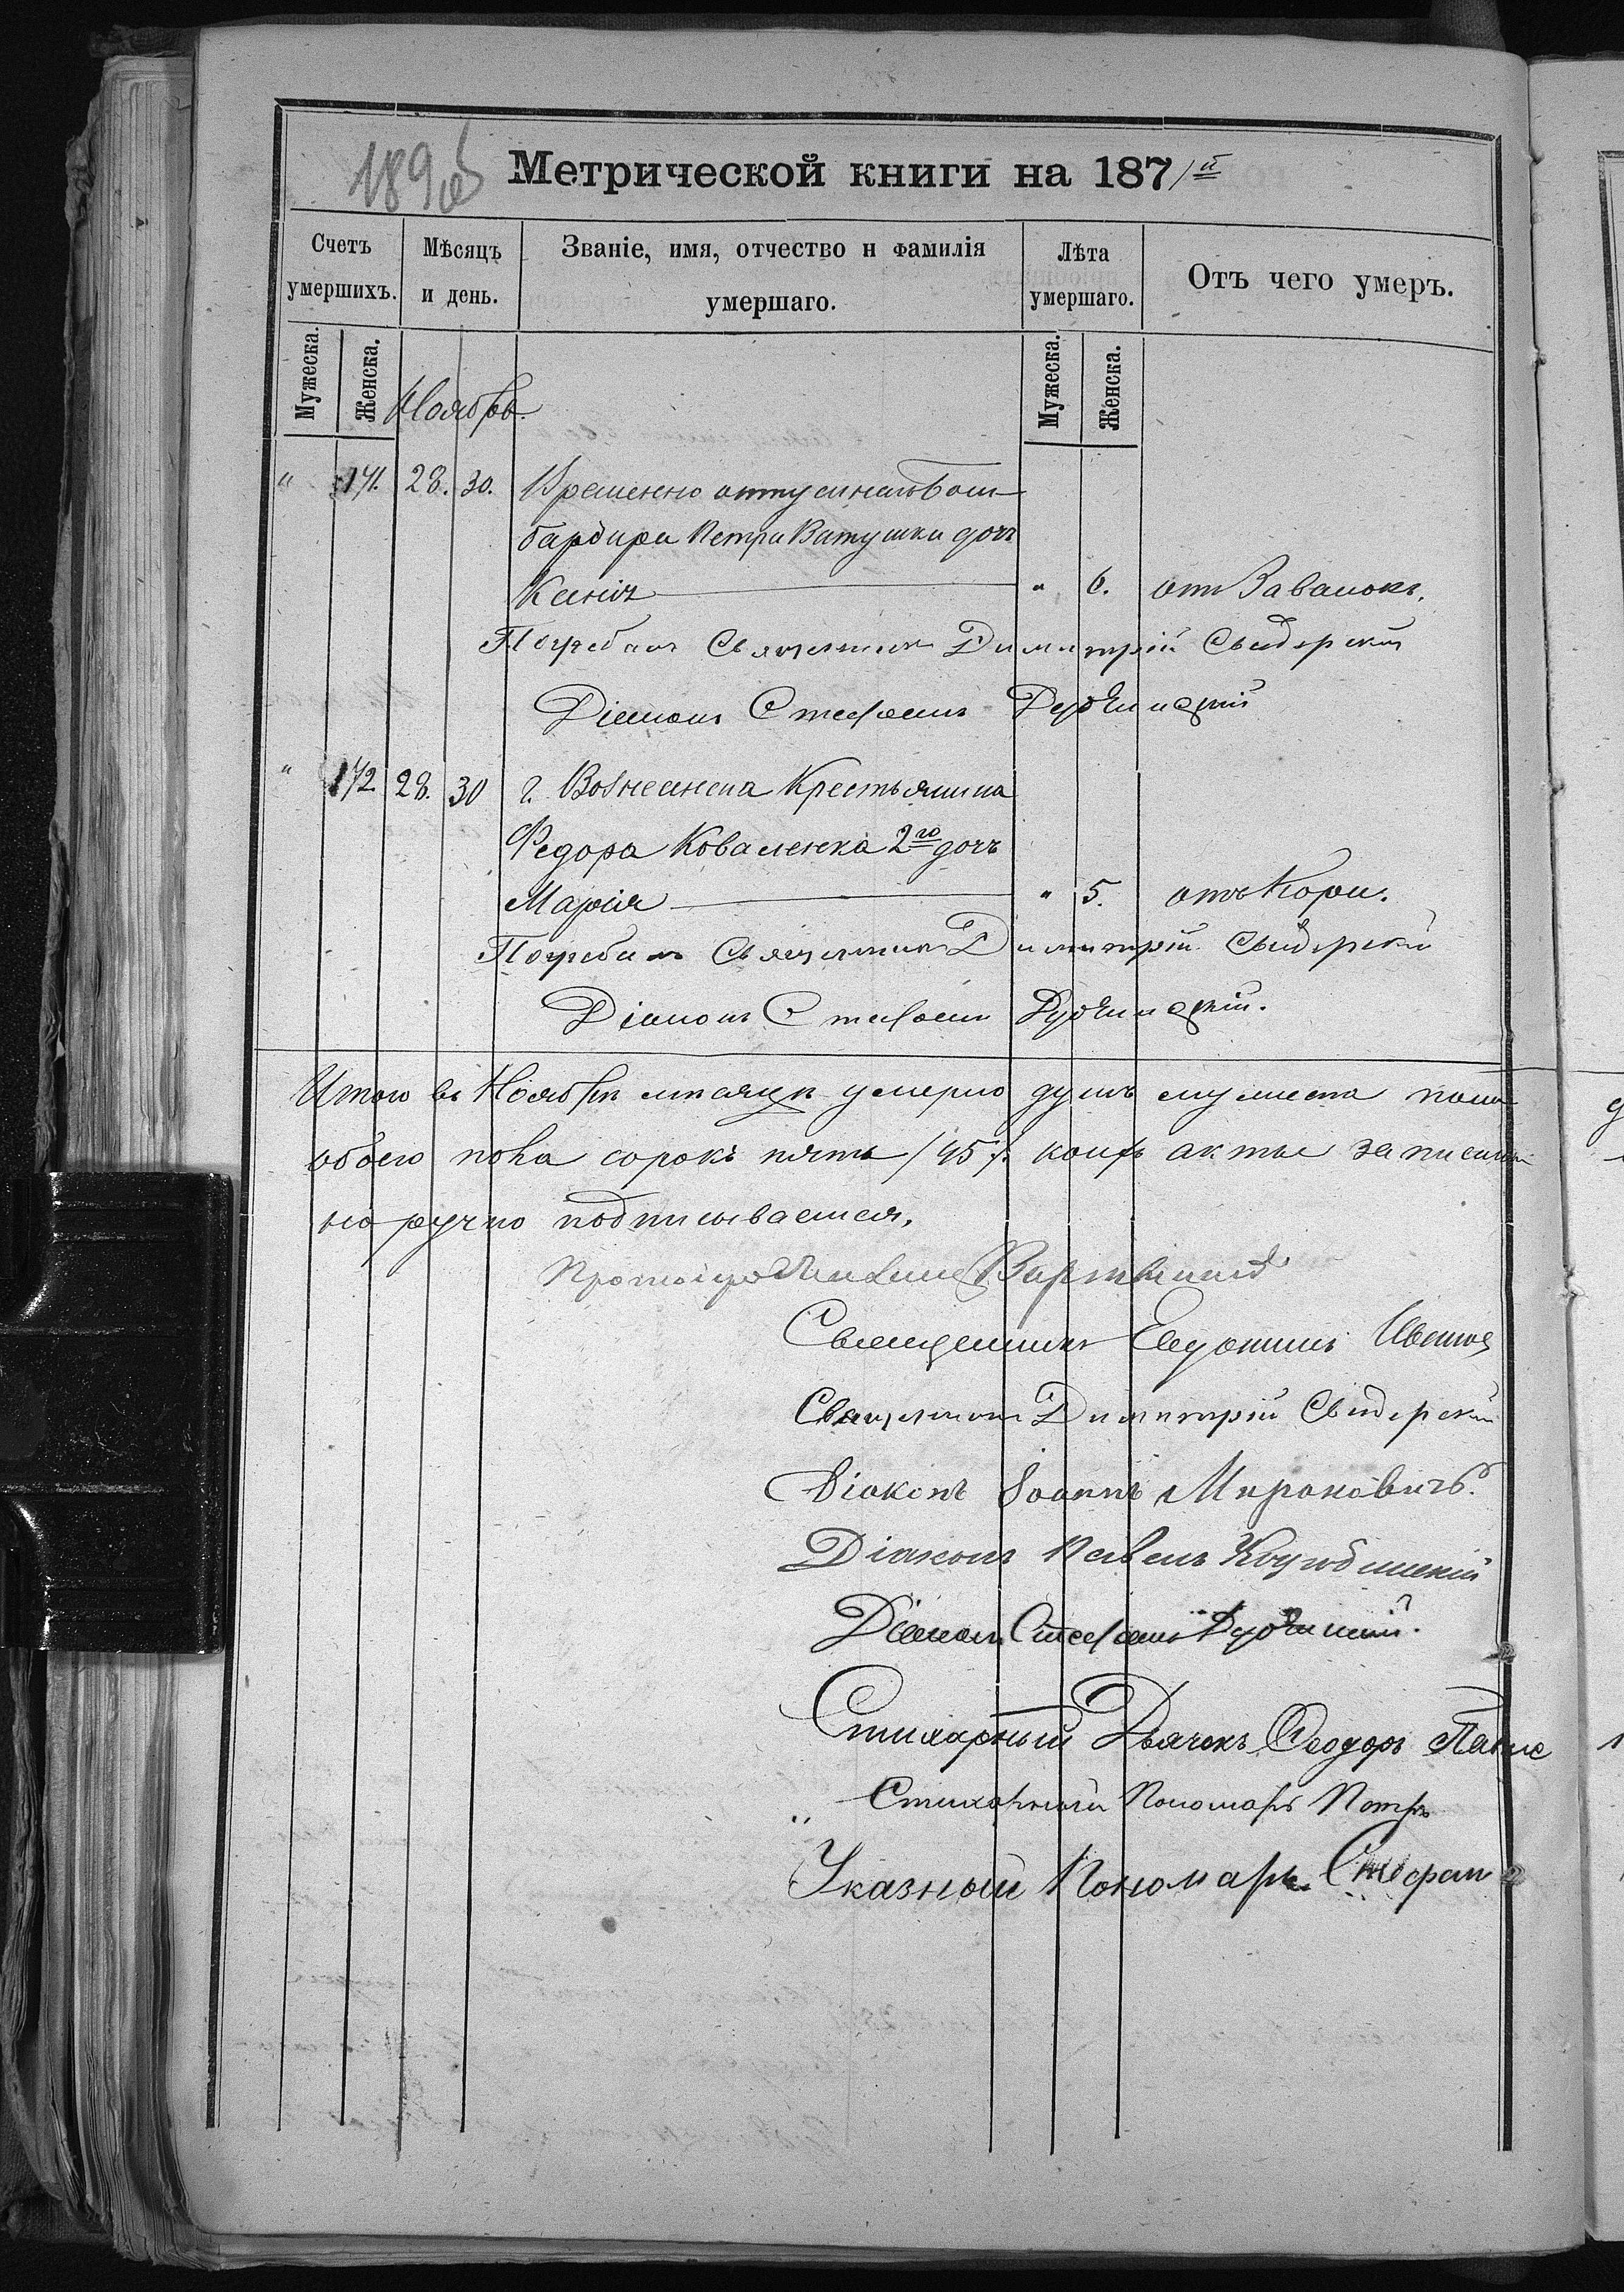 189 об
Метрической книги на 1871й
Счетъ умершихъ.
Мѣсяцъ и день.
Званіе, имя, отчество и фамилія умершаго.
Лѣта умершаго.
Отъ чего умеръ.
Мужеска.
Женска.
Мужеска.
Женска.
Ноябрь.
" 171. 28. 30. Временно отпускнаго Бом-
бардира Петра Ватушки дочь
Ксенія " 6. отъ Завалокъ.
Погребалъ Священникъ Димитрій Свидерскій
Діаконъ Стефанъ
" 172 28. 30 г. Вознесенска Крестьянина
Федора Коваленка 2го дочь
Марія " 5. отъ Кори.
Погребалъ Священникъ Димитрій Свидерскій
Діаконъ Стефанъ
Итого въ Ноябрѣ мѣсяцѣ умерло душъ мужеска пола
обоего пола сорокъ пять /45/. коихъ акты записаны
но ручно подписываемся.
Протоіерей
Священникъ Евдокимъ
Священникъ Димитрій Свидерскій
Діаконъ Іоаннъ Мироновичъ.
Діаконъ Павелъ
Діаконъ Стефанъ
Стихарный Дьячекъ Ѳеодоръ
" Стихарный Пономарь Петръ
Указный Пономарь Стефан